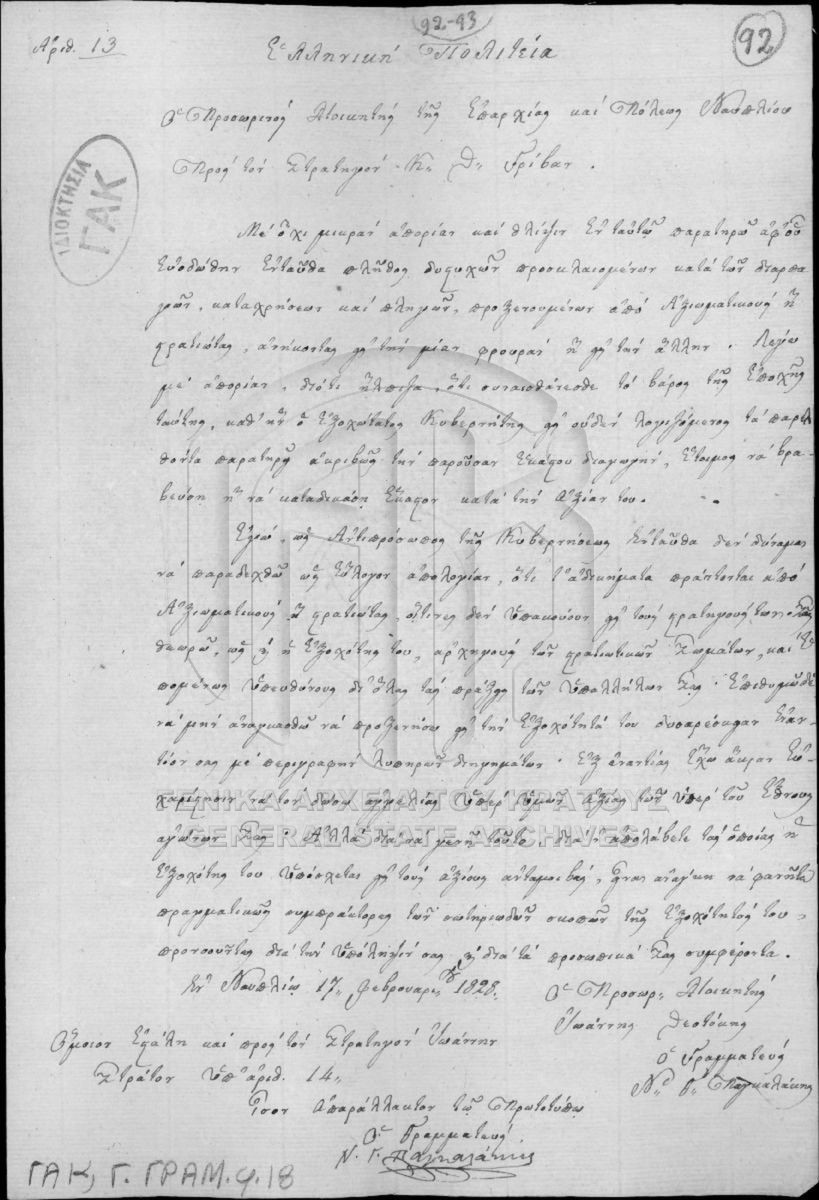 92-93
92
Ἀριθ. 13
Ἑλληνικὴ Πολιτεία
Ὁ Προσωρινὸς Διοικητὴς τῆς Ἐπαρχίας καὶ Πόλεως Ναυπλίου
Πρὸς τὸν Στρατηγὸν Κ. Θ. Γρίβαν.
ΙΔΙΟΚΤΗΣΙΑ
ΓΑΚ
Μὲ ὄχι μικρὰν ἀπορίαν καὶ θλίψιν ἐν ταὐτῷ παρατηρῶ ἀφ' οὗ
εὐοδώθην ἐνταῦθα πλῆθος δυστυχῶν προσκλαιομένων κατὰ τῶν διαρπα-
γῶν, καταχρήσεων καὶ πληγῶν, προξενουμένων ἀπὸ Ἀξιωματικοὺς ἢ
στρατιώτας, ἀνήκοντας εἰς τὴν μίαν φρουρὰν ἢ εἰς τὴν ἄλλην. Λέγω
μὲ ἀπορίαν, διότι ἤλπιζα, ὅτι συναισθάνεσθε τὸ βάρος τῆς ἐποχῆς
ταύτης, καθ' ἣν ὁ Ἐξοχώτατος Κυβερνήτης εἰς οὐδὲν λογιζόμενος τὰ παρελ-
θόντα παρατηρεῖ ἀκριβῶς τὴν παροῦσαν ἑκάστου διαγωγήν, ἕτοιμος νὰ βρα-
βεύσῃ ἢ νὰ καταδικάσῃ ἕκαστον κατὰ τὴν ἀξίαν του.
Ἐγώ, ὡς Ἀντιπρόσωπος τῆς Κυβερνήσεως ἐνταῦθα δὲν δύναμαι
νὰ παραδεχθῶ ὡς εὔλογον ἀπολογίαν, ὅτι τ' ἀδικήματα πράττονται ἀπὸ
Ἀξιωματικοὺς ἢ στρατιώτας, οἵτινες δὲν ὑπακούουν εἰς τοὺς στρατηγούς των. Σᾶς
θεωρῶ, ὡς καὶ ἡ Ἐξοχότης του, ἀρχηγοὺς τῶν στρατιωτικῶν Σωμάτων, καὶ ἑ-
πομένως ὑπευθύνους δι' ὅλας τὰς πράξεις τῶν ὑπαλλήλων σας. Ἐπιθυμῶ δὲ
νὰ μὴν ἀναγκασθῶ νὰ προξενήσω εἰς τὴν Ἐξοχότητά του δυσαρέσκειαν ἐναν-
τίον σας μὲ περιγραφὴν λυπηρῶν διηγημάτων. Ἐξ ἐναντίας ἔχω ἄκραν εὐ-
χαρίστησιν νὰ τὸν δώσω ἀγγελίας ὑπὲρ ὑμῶν ἀξίας τῶν ὑπὲρ τοῦ Ἔθνους
ἀγώνων σας. Ἀλλὰ διὰ νὰ γενῇ τοῦτο, διὰ ν' ἀπολάβετε τὰς ὁποίας ἡ
Ἐξοχότης του ὑπόσχεται εἰς τοὺς ἀξίους ἀνταμοιβάς, εἶναι ἀνάγκη νὰ φανῆτε
πραγματικῶς συμπράκτορες τῶν σωτηριωδῶν σκοπῶν τῆς Ἐξοχότητός του
προνοοῦντες διὰ τὴν ὑπόληψίν σας καὶ διὰ τὰ προσωπικά σας συμφέροντα.
Ἐν Ναυπλίῳ 17 Φεβρουαρίου 1828.
Ὁ Προσωρ. Διοικητὴς
Ἰωάννης Θεοτόκης
Ὁ Γραμματεὺς
Ν. Γ. Παγκαλάκης
Ὅμοιον ἐστάλη καὶ πρὸς τὸν Στρατηγὸν Ἰωάννην
Στράτον ὑπ' ἀριθ. 14
Ἴσον ἀπαράλλακτον τῷ Πρωτοτύπῳ
Ὁ Γραμματεὺς
Ν. Γ. Παγκαλάκης
ΓΕΝΙΚΑ ΑΡΧΕΙΑ ΤΟΥ ΚΡΑΤΟΥΣ
GENERAL STATE ARCHIVES
ΓΑΚ, Γ. ΓΡΑΜ. φ. 18